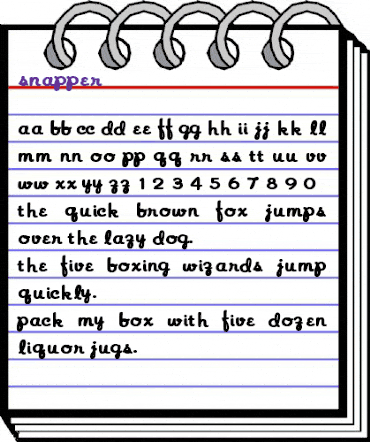 snapper
aa bb cc dd ee ff gg hh ii jj kk ll
mm nn oo pp qq rr ss tt uu vv
ww xx yy zz 1 2 3 4 5 6 7 8 9 0
the quick brown fox jumps
over the lazy dog.
the five boxing wizards jump
quickly.
pack my box with five dozen
liquor jugs.